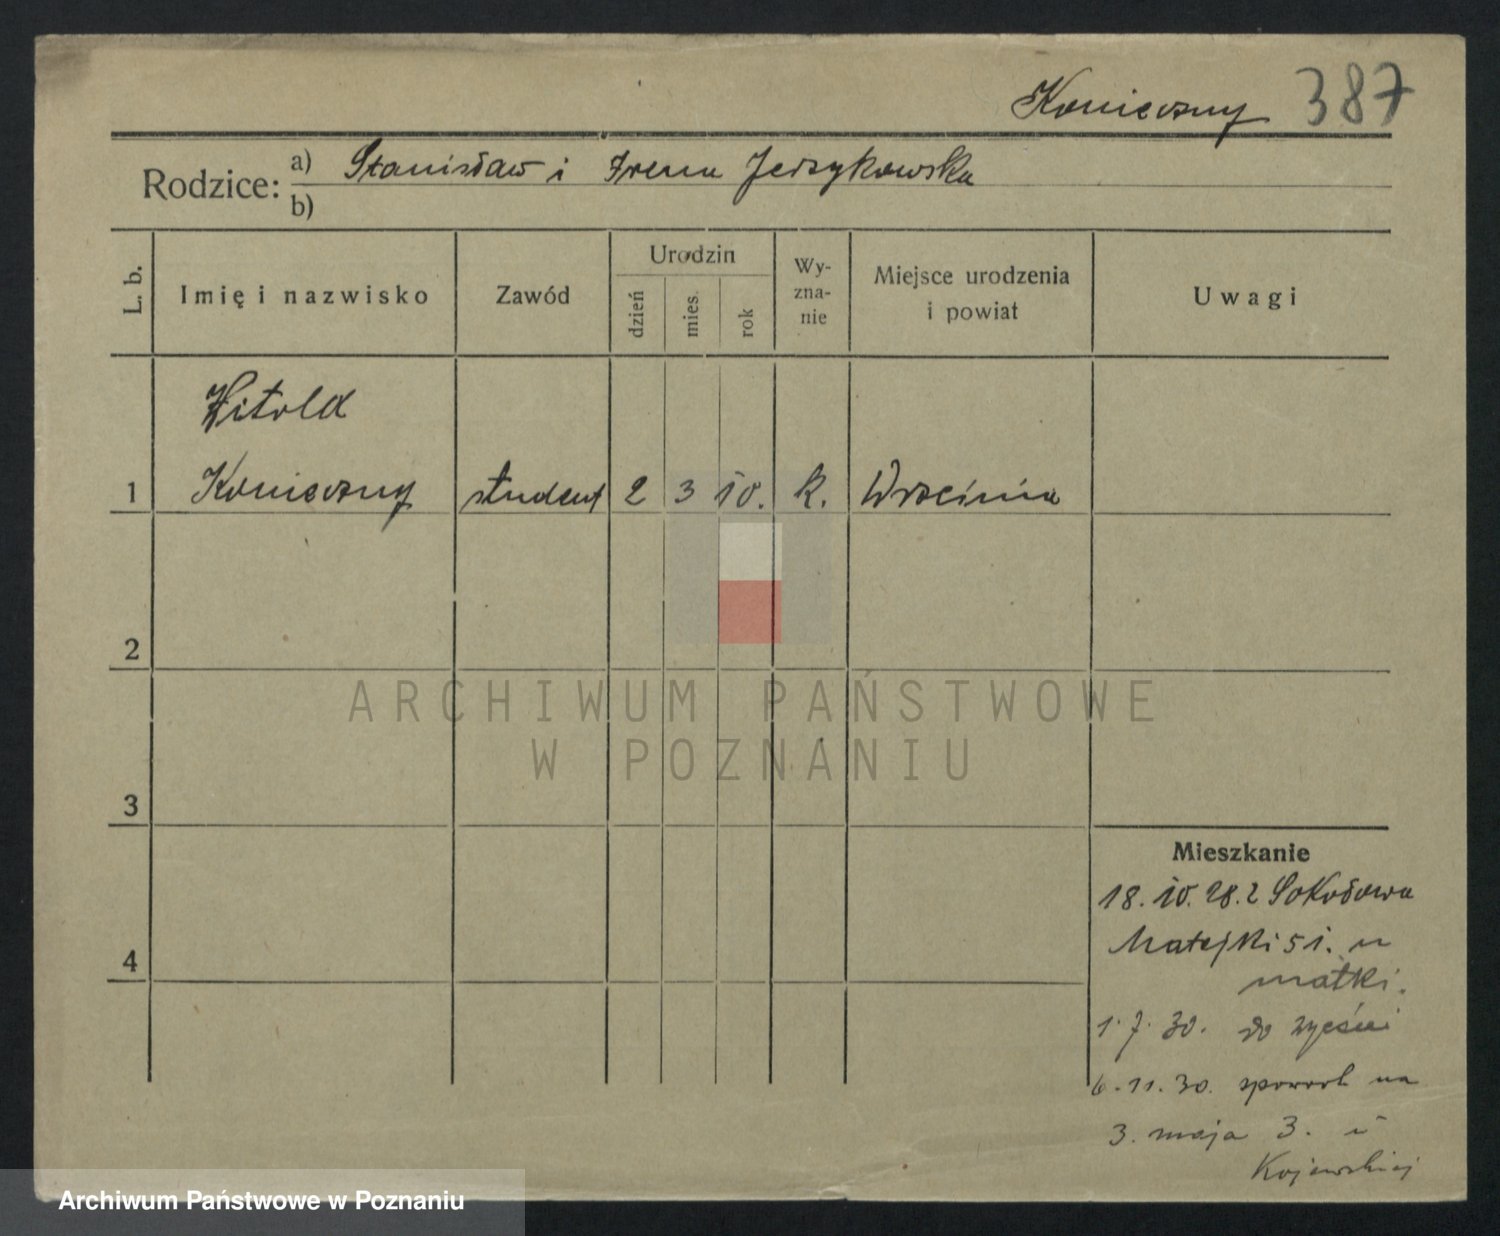 Konieczny 387
Rodzice: a) Stanisław i Irena Jerzykowska
b)
L. b.
Imię i nazwisko
Zawód
Urodzin
dzień
mies.
rok
Wy-
zna-
nie
Miejsce urodzenia
i powiat
Uwagi
Witold
1 Konieczny student 2 3 10. k. Września
2
ARCHIWUM PAŃSTWOWE
W POZNANIU
3
Mieszkanie
18. 10. 28. z Sokołowa
4 Matejki 51. u
matki.
1. 7. 30. do
6. 11. 30. na
3. maja 3. u
Kojewskiej
Archiwum Państwowe w Poznaniu